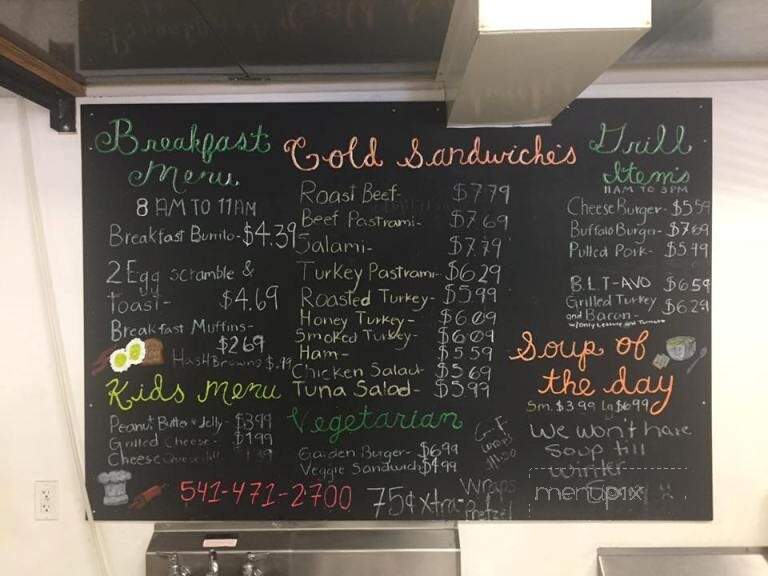 Breakfast
Menu
8 AM TO 11AM
Breakfast Burrito- $4.39
2 Egg scramble &
Toast- $4.69
Breakfast Muffins-
$2.69
Hash Browns $.99
Kids Menu
Peanut Butter & Jelly- $3.99
Grilled Cheese- $1.99
Cheese
541-471-2700
Cold Sandwiche's
Roast Beef- $7.79
Beef Pastrami- $7.69
Salami- $7.79
Turkey Pastrami- $6.29
Roasted Turkey- $5.99
Honey Turkey- $6.09
Smoked Turkey- $6.09
Ham- $5.59
Chicken Salad- $5.69
Tuna Salad- $5.99
Vegetarian
Garden Burger- $6.99
Veggie Sandwich $4.99
75¢ xtra-
Wraps
Pretzel
G.F.
$1.00
Grill
Item's
11AM TO 3PM
Cheese Burger- $5.59
Buffalo Burger- $7.69
Pulled Pork- $5.99
B.L.T-AVO $6.59
Grilled Turkey
and Bacon- $6.29
w/only Lettuce and Tomato
Soup of
the day
Sm. $3.99 Lg $6.99
We won't have
Soup till
winter
menupix